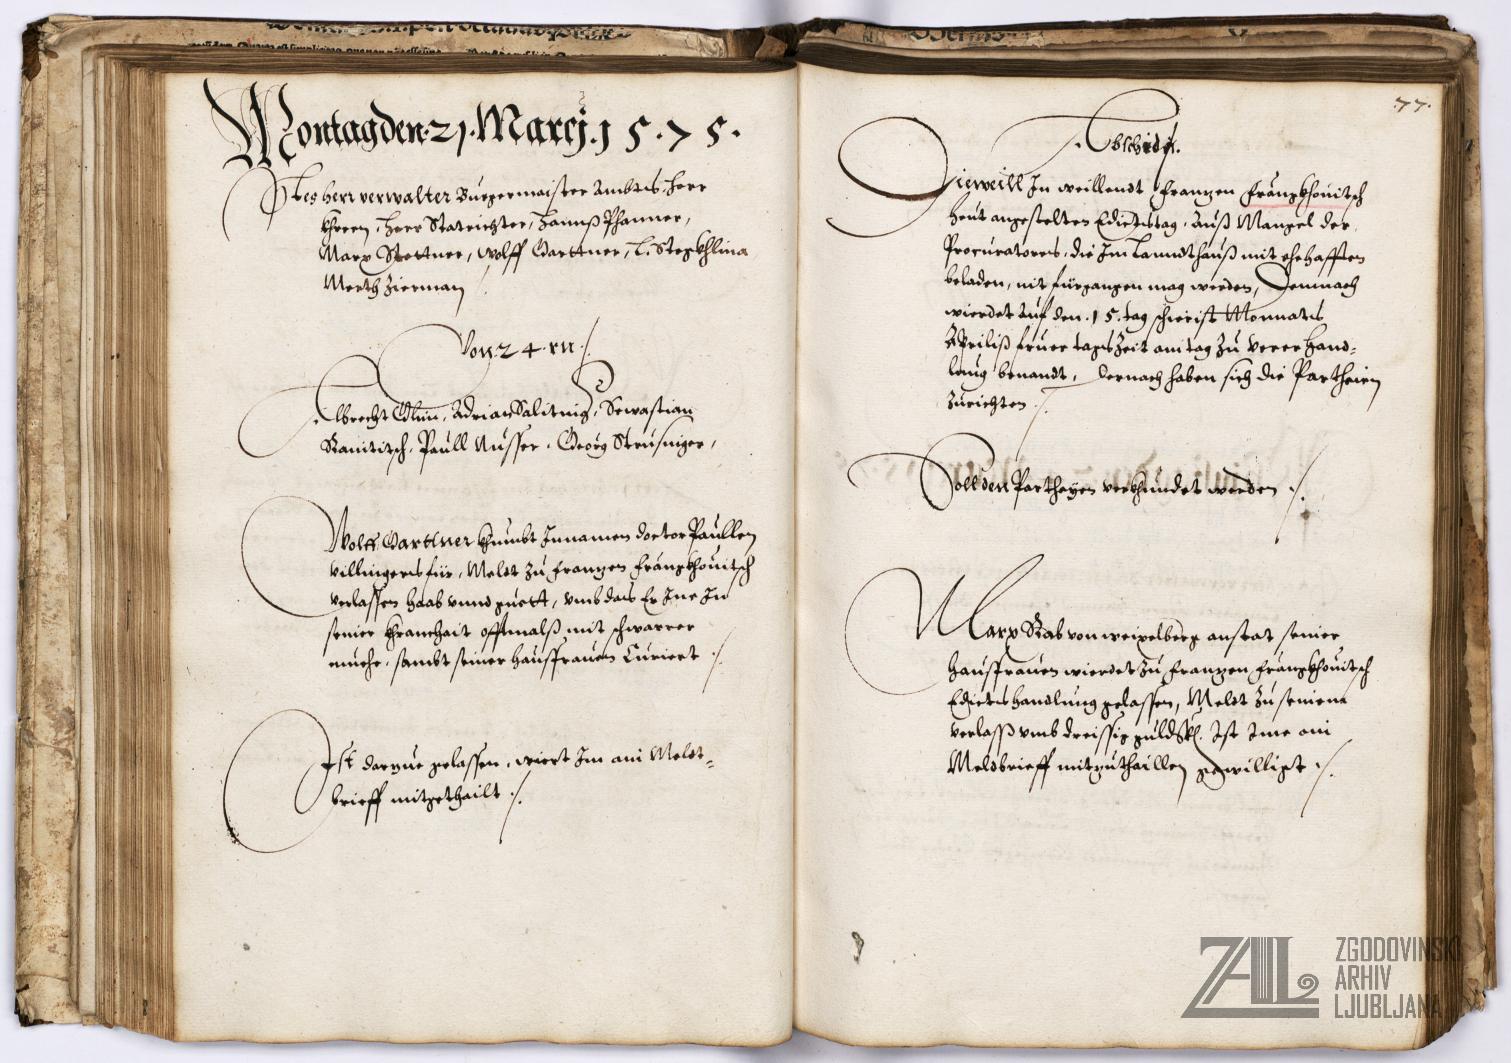 Montag den 21 Marcÿ. 1575.
Its herr verwalter Burgermaister Ambts, herr
Khreen, herr Statrichter, Hannß Pfanner,
Marx Stettner, Wolff Garttner, L. Stegkhlina
Merth Zierman
Von 24.rn
Albrecht Adrian Salitnig, Sewastian
Ranititsch, Paull Nusser, Georg Strusniger,
Wolff Garttner khumbt Innamen doctor Paullen
Villingers für, Meldt zu Franzen Fränzkhouitsch
verlassen haab vnnd guett, vmb das Er Ine In
seiner khranchait offtmalß mit schwarer
muehe, sambt seiner haussfrauen Curiert
Ist darzue gelassen, wiert Im ain Meldt-
brieff mitgethailt
.77.
Abschidt.
Dieweill In weillendt Franzen Fränzkhouitsch
heut angestelten Edictstag, auß Mangel der
Procuratores, die Im Lanndthauß mit ehehafften
beladen, nit fürgangen mag werden, Demnach
wierdet auf den .15. tag schierist Monnats
Aprilis fruer tags Zeit ain tag zu verer hand-
lung benandt, Dernach haben sich die Partheien
zurichten
Soll den Partheyen verkhundet werden
Marx Rab von Weixelberg anstat seiner
haussfrauen wierdet zu Franzen Fränzkhouitsch
Edictshandlung gelassen, Meldt zu seinem
verlaß vmb dreissig guld Ist Ime ain
Meldbrieff mitzuthaillen gewilligt
ZAL
ZGODOVINSKI
ARHIV
LJUBLJANA